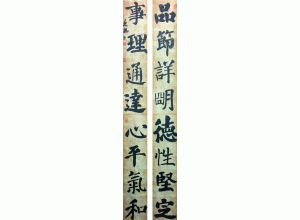 品節詳明德性堅定
事理通達心平氣和